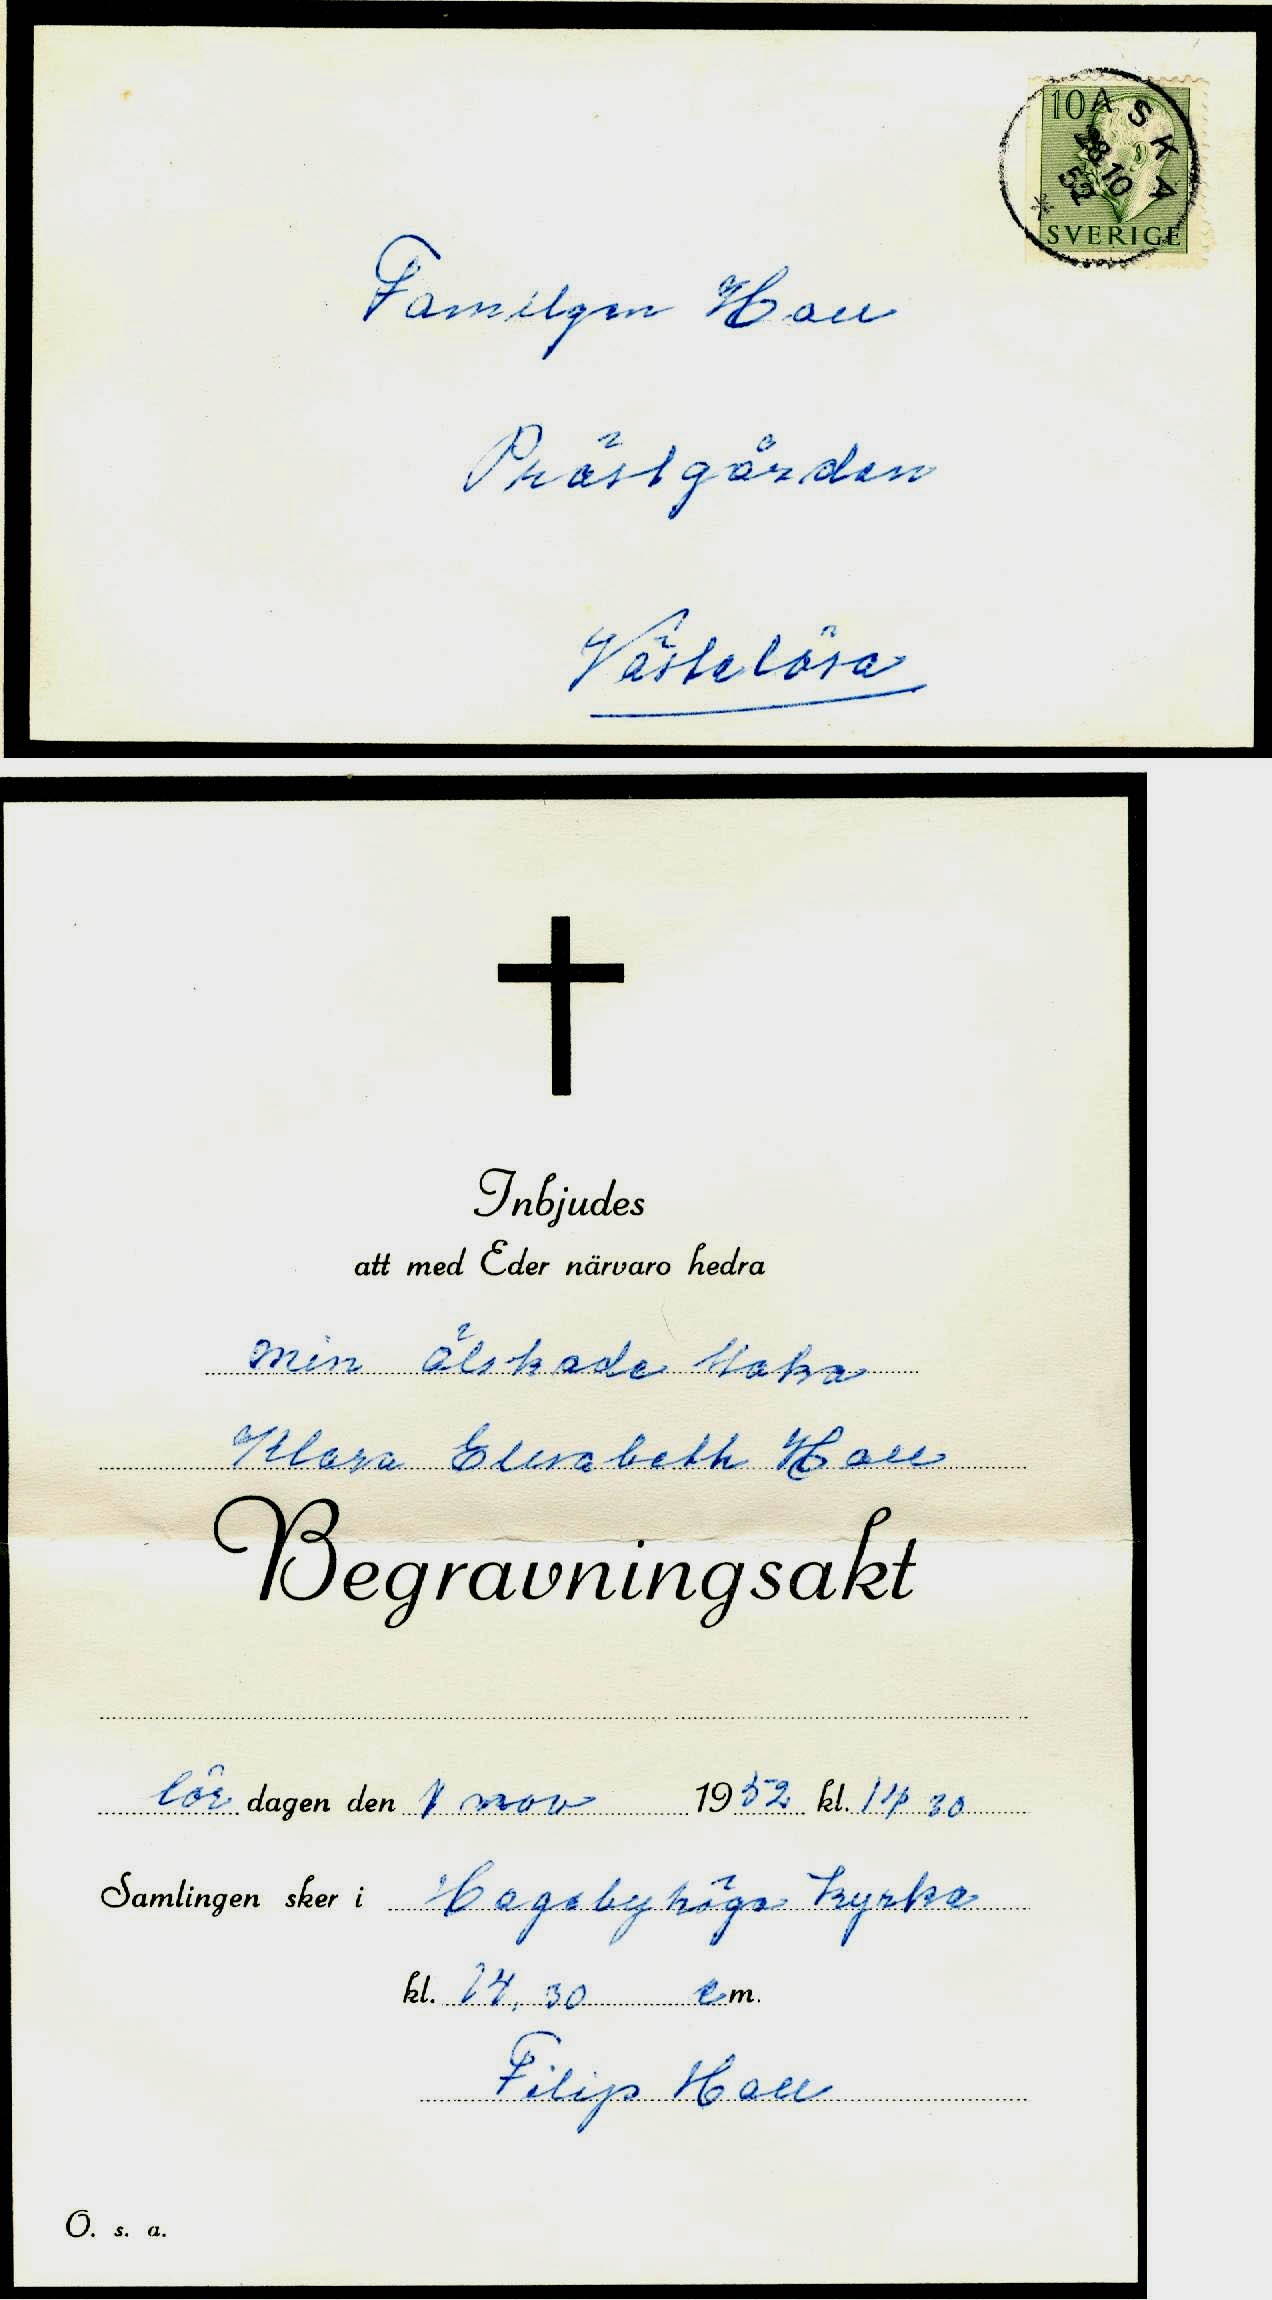 10
ASKA
28.10
52
SVERIGE
Familjen Hall
Prästgården
Västelösa
Inbjudes
att med Eder närvaro hedra
min älskade Maka
Klara Elisabeth Hall
Begravningsakt
lör dagen den 1 nov 1952 kl. 14 30
Samlingen sker i Hagebyhöga kyrka
kl. 14,30 em.
Filip Hall
O. s. a.